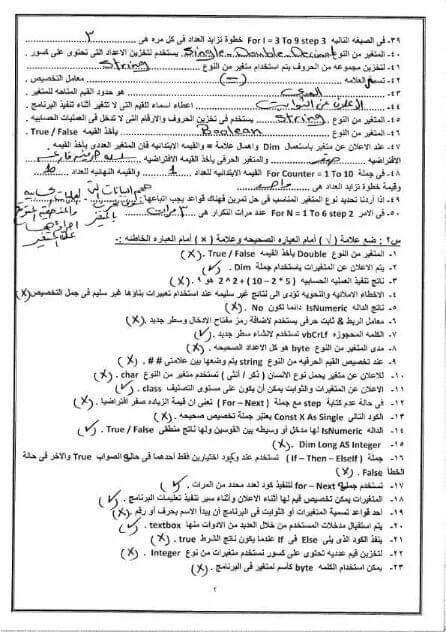 ٣٩- فى الصيغه التاليه For I = 3 To 9 step 3 خطوة تزايد العداد فى كل مره هى ٣
٤٠- المتغير من النوع Single - Double - Decimal يستخدم لتخزين الاعداد التى تحتوى على كسور .
٤١- لتخزين مجموعه من الحروف يتم استخدام متغير من النوع String
٤٢- تسمى العلامه (=) معامل التخصيص .
٤٣- المدى هو حدود القيم المتاحه للمتغير .
٤٤- الاعلان عن الثوابت اعطاء اسماء للقيم التى لا تتغير أثناء تنفيذ البرنامج .
٤٥- المتغير من النوع String يستخدم فى تخزين الحروف والارقام التى لا تدخل فى العمليات الحسابيه .
٤٦- المتغير من النوع Boolean يأخذ القيمه True / False .
٤٧- عند الاعلان عن متغير باستعمال Dim واهمال علامة = والقيمه الابتدائيه فان المتغير العددى يأخذ القيمه
الافتراضيه صفر والمتغير الحرفى يأخذ القيمه الافتراضيه سلسله حرفيه فارغه
٤٨- فى جملة For Counter = 1 To 10 القيمه الابتدائيه للعداد 1 والقيمه النهائيه للعداد 10
وقيمة خطوة تزايد العداد هى واحد
٤٩- اذا أردنا تحديد نوع المتغير المناسب فى حل تمرين فهناك قواعد يجب اتباعها:
٥٠- فى الامر For N = 1 To 6 step 2 عدد مرات التكرار هى ٣ مرات
س٢ : ضع علامة ( √ ) أمام العباره الصحيحه وعلامة ( × ) أمام العباره الخاطئه :-
١- المتغير من النوع Double يأخذ القيمه True / False . (×)
٢- يتم الاعلان عن المتغيرات باستخدام جملة Dim . (√)
٣- ناتج تنفيذ العمليه الحسابيه 2 ^ 2 + (10 – 2 * 5) هو ٤ (×)
٤- الاخطاء الاملائيه والنحويه تؤدى الى نتائج غير سليمه عند استخدام تعبيرات بناؤها غير سليم فى جمل التخصيص (×)
٥- ناتج الداله IsNumeric دائما تكون No . (×)
٦- معامل الربط & ثابت حرفى يستخدم لاضافة رمز مفتاح الادخال وسطر جديد . (×)
٧- الكلمه المحجوزه vbCrLf تستخدم لانشاء سطر جديد . (√)
٨- مدى المتغير من النوع byte هو كل الاعداد الصحيحه . (×)
٩- عند تخصيص القيم الحرفيه من النوع string يتم وضعها بين علامتى # # . (×)
١٠- للاعلان عن متغير يحمل نوع الانسان ( ذكر / أنثى ) نستخدم متغير من النوع char . (×)
١١- الاعلان عن المتغيرات والثوابت يمكن أن يكون على مستوى التصنيف class . (√)
١٢- فى حالة عدم كتابة step مع جملة ( For – Next ) تعنى أن قيمة الزياده صفر افتراضيا . (×)
١٣- الكود التالى Const X As Single يعتبر جملة تخصيص صحيحه . (×)
١٤- الداله IsNumeric لها مدخل أو وسيطه بين القوسين ولها ناتج منطقى True / False . (√)
١٥- Dim Long AS Integer . (×)
١٦- جملة ( If – Then – ElseIf ) تستخدم عند وجود اختيارين فقط أحدهما فى حالة الصواب True والاخر فى حالة
الخطأ False . (×)
١٧- تستخدم جملة for – Next لتنفيذ كود لعدد محدد من المرات . (√)
١٨- المتغيرات يمكن تخصيص قيم لها أثناء الاعلان وأثناء سير تنفيذ تعليمات البرنامج . (√)
١٩- احد قواعد تسمية المتغيرات أو الثوابت فى البرنامج أن يبدأ الاسم بحرف أو رقم . (×)
٢٠- يتم استقبال مدخلات المستخدم من خلال العديد من الادوات منها textbox . (√)
٢١- ينفذ الكود الذى يلى Else فى If عندما يكون ناتج الشرط true . (×)
٢٢- لتخزين قيم عدديه تحتوى على كسور نستخدم متغيرات من نوع Integer . (×)
٢٣- يمكن استخدام الكلمه byte كأسم لمتغير فى البرنامج . (×)
٢